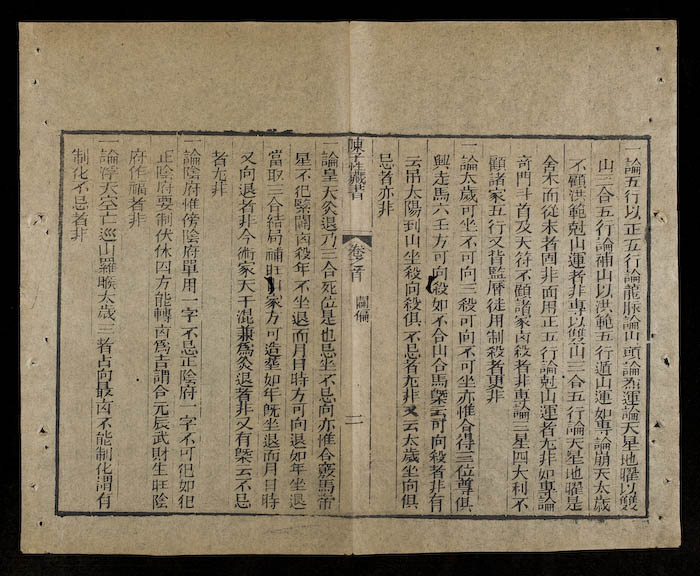 一論五行以正五行論龍脉論山頭論兼運論天星地曜以雙
山三合五行論補山以洪範五行遁山運如專論崩天太歲
不顧洪範尅山運者非專以雙山三合五行論天星地曜是
舍本而從末者固非而用正五行論尅山運者尤非如專論
奇門斗首及天符不顧諸家凶殺者非專論三星四大利不
顧諸家五行又背監曆徒用制殺者更非
一論太歲可坐不可向三殺可向不可坐亦惟合得三位尊俱
興走馬六壬方可向殺如不合山合馬槩云可向殺者非有
云弔太陽到山坐殺向殺俱不忌者尤非又云太歲坐向俱
忌者亦非
陳子性藏書
卷之首
闢僞
二
一論皇天灸退乃三合死位是也忌坐不忌向亦惟合祿馬帝
星不犯緊關凶殺年不坐退而月日時方可向退如年坐退
當取三合結局補旺如家方可造葬如年旣坐退而月日時
又向退者非今術家天干混兼爲灸退者非又有槩云不忌
者尤非
一論陰府惟傍陰府單用一字不忌正陰府一字不可犯如犯
正陰府要制伏休囚方能轉凶爲吉謂合元辰武財生旺陰
府作福者非
一論浮天空亡巡山羅㬋太歲三者占向最凶不能制化謂有
制化不忌者非